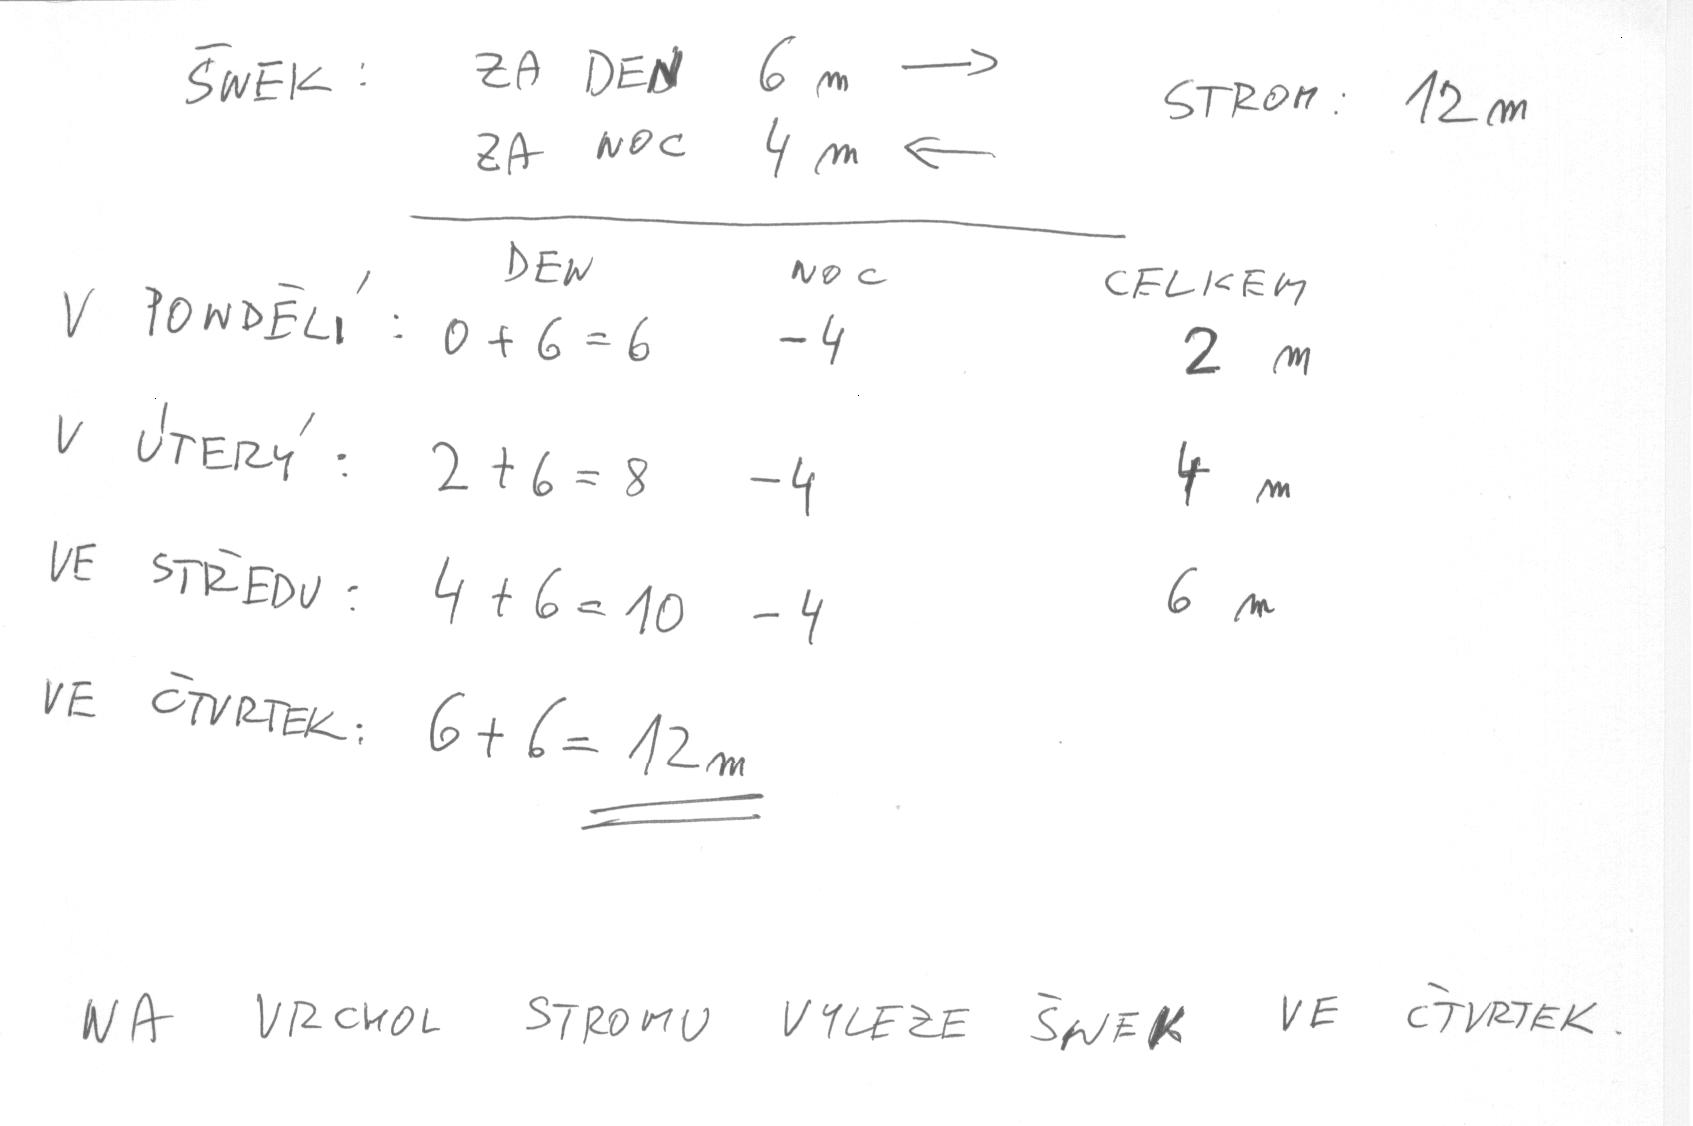 ŠNEK: ZA DEN 6 m → STROM: 12 m
ZA NOC 4 m ←
DEN NOC CELKEM
V PONDĚLÍ: 0 + 6 = 6 -4 2 m
V ÚTERÝ: 2 + 6 = 8 -4 4 m
VE STŘEDU: 4 + 6 = 10 -4 6 m
VE ČTVRTEK: 6 + 6 = 12 m
NA VRCHOL STROMU VYLEZE ŠNEK VE ČTVRTEK.